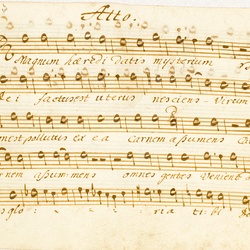 Alto.
Magnum hæreditatis mysterium
Dei factus est uterus nesciens Virum
non est pollutus ex ea Carnem assumens
Carnem assumens omnes gentes Venient
glo: ria tibi